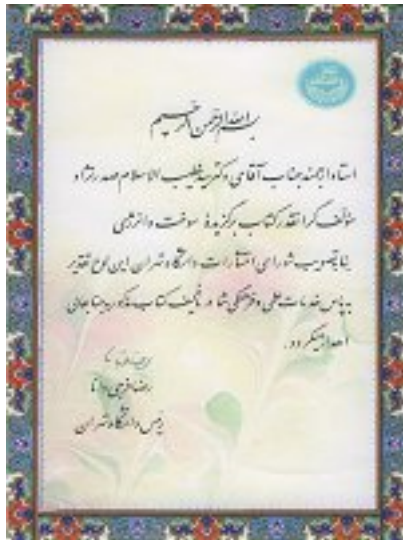 بسم الله الرحمن الرحیم
استاد ارجمند جناب آقای دکتر سید خطیب الاسلام صدرنژاد
مؤلف گرانقدر کتاب برگزیدهٔ سوخت و انرژی
بنا بتصویب شورای انتشارات دانشگاه تهران این لوح تقدیر
به پاس خدمات علمی و فرهنگی شما در تألیف کتاب مذکور به جنابعالی
اهدا میگردد.
رضا فرجی دانا
رئیس دانشگاه تهران